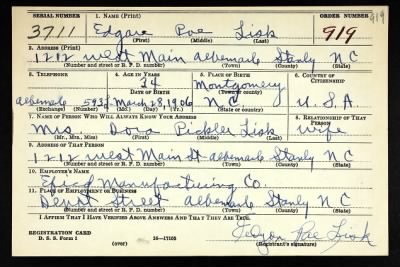 SERIAL NUMBER 1. NAME (Print) ORDER NUMBER 919
3711 Edgar Poe Lisk 919
(First) (Middle) (Last)
2. ADDRESS (Print)
1212 West Main Albemarle Stanly N C
(Number and street or R. F. D. number) (Town) (County) (State)
3. TELEPHONE 4. AGE IN YEARS 5. PLACE OF BIRTH 6. COUNTRY OF CITIZENSHIP
34 Montgomery
DATE OF BIRTH (Town or county)
Albemarle 593 March 28, 1906 N. C. U. S. A
(Exchange) (Number) (Mo.) (Day) (Yr.) (State or country)
7. NAME OF PERSON WHO WILL ALWAYS KNOW YOUR ADDRESS 8. RELATIONSHIP OF THAT PERSON
Mrs. Dora Pickler Lisk Wife
(Mr., Mrs., Miss) (First) (Middle) (Last)
9. ADDRESS OF THAT PERSON
1212 West Main St Albemarle Stanly N C
(Number and street or R. F. D. number) (Town) (County) (State)
10. EMPLOYER'S NAME
Efird Manufacturing Co.
11. PLACE OF EMPLOYMENT OR BUSINESS
Depot Street Albemarle Stanly N C
(Number and street or R. F. D. number) (Town) (County) (State)
I AFFIRM THAT I HAVE VERIFIED ABOVE ANSWERS AND THAT THEY ARE TRUE.
REGISTRATION CARD
D. S. S. Form 1 (over) 16-17105 (Registrant's signature)
Poe Lisk